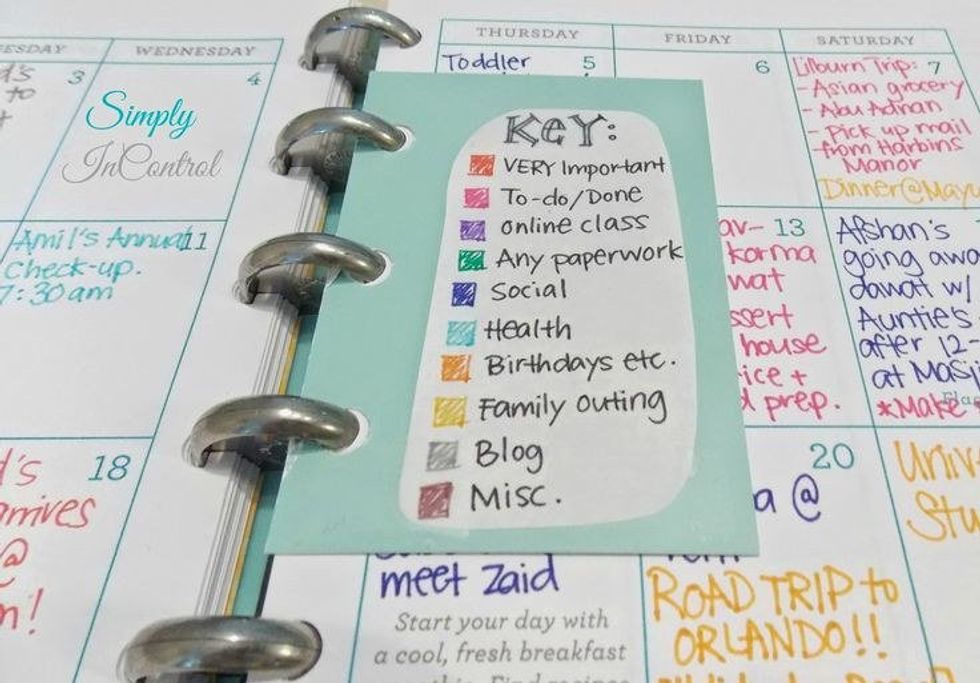 WEDNESDAY
THURSDAY
FRIDAY
SATURDAY
3
4
to
Simply
InControl
Toddler 5
6
Lilburn Trip: 7
- Asian grocery
- Abu Adnan
- pick up mail
from Hairbins
Manor
Dinner@
KEY:
VERY Important
To-do/Done
online class
Any paperwork
Social
Health
Birthdays etc.
Family outing
Blog
Misc.
Amil's Annual 11
check-up.
7:30am
13
korma
house
prep.
Afshan's
going
dawat w/
Auntie's
after 12-
at
*Make
18
arrives
@
20
@
meet Zaid
Start your day with
a cool, fresh breakfast
ROAD TRIP to
ORLANDO!!